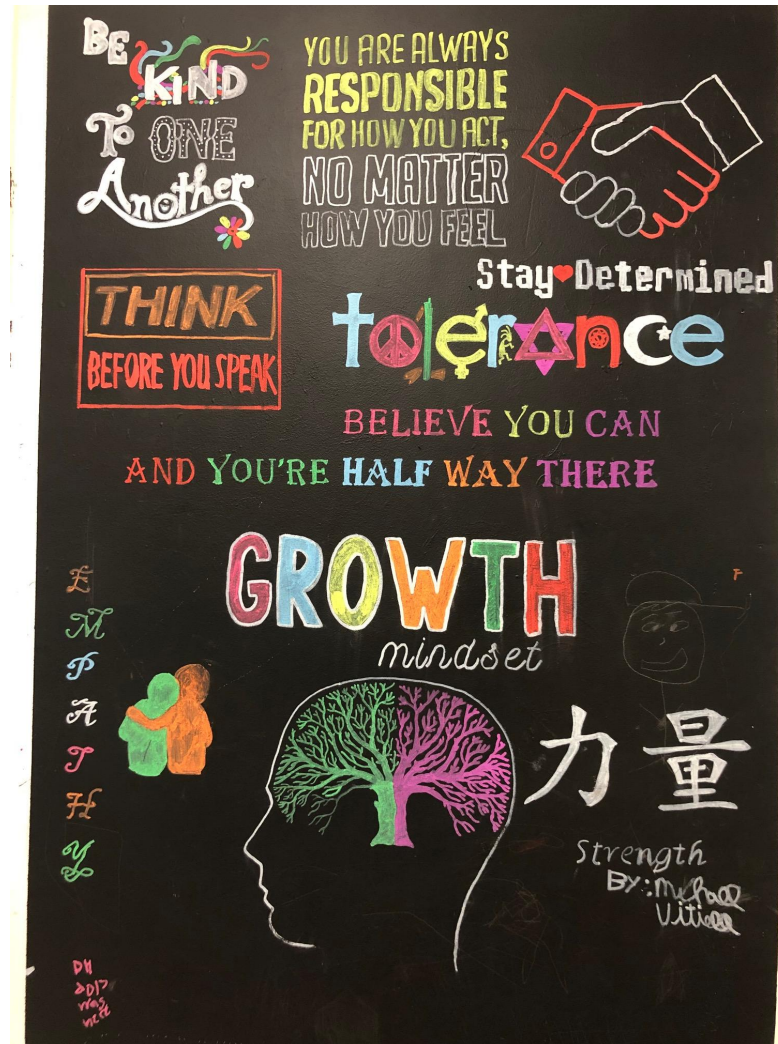 BE
KIND
TO ONE
Another
YOU ARE ALWAYS
RESPONSIBLE
FOR HOW YOU ACT,
NO MATTER
HOW YOU FEEL
Stay Determined
THINK
BEFORE YOU SPEAK
tolerance
BELIEVE YOU CAN
AND YOU'RE HALF WAY THERE
GROWTH
mindset
E
M
P
A
T
H
Y
F
力量
Strength
BY: Michael
DH
was